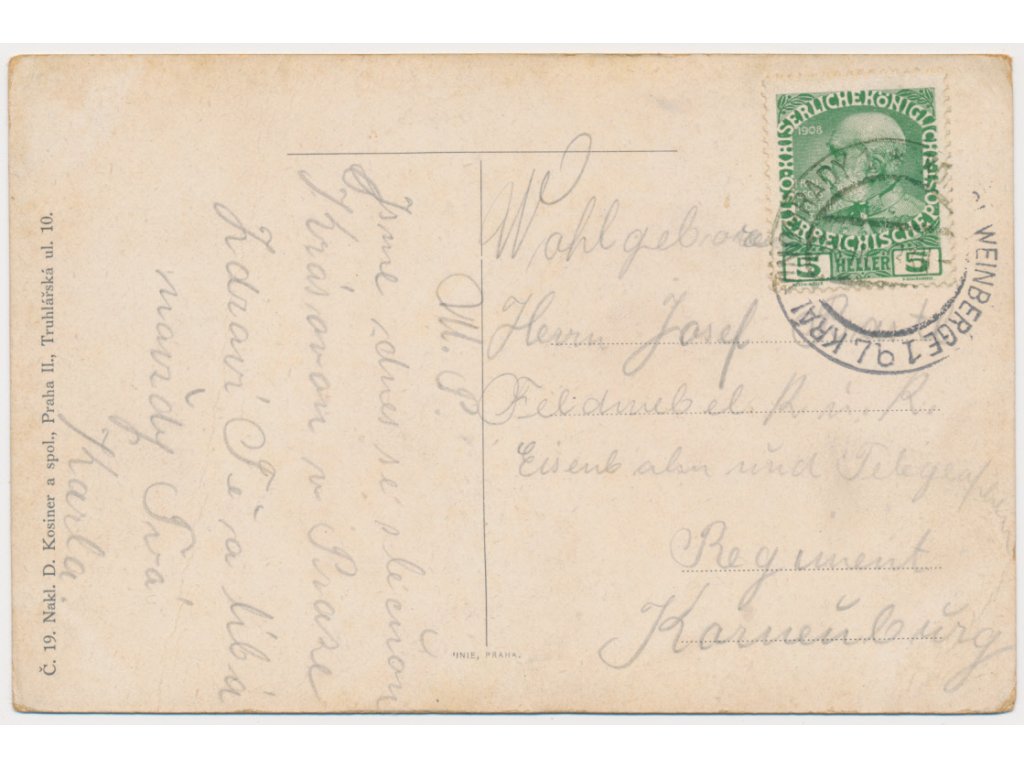 M. P.
Jsme dnes se slečnou
Krásovou v Praze
Zdraví Tě a líbá
navždy Tvá
Karla.
Č. 19. Nakl. D. Kosiner a spol., Praha II., Truhlářská ul. 10.
UNIE, PRAHA.
Wohlgeboren
Herrn Josef
Feldwebel K. u. K.
Eisenbahn und Telegraphen
Regiment
Korneuburg
KAISERLICHE KÖNIGLICHE
ÖSTERREICHISCHE POST
1908
5 HELLER 5
WEINBERGE 1
KRÁL.